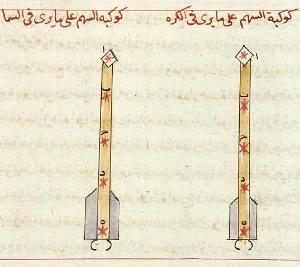 كوكبة السهم على ما يرى فى الكره
كوكبة السهم على ما يرى فى السما